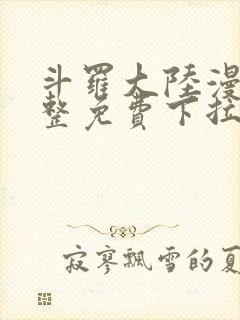 斗羅大陸漫
整免費下拉
寂寥飄雪的夏